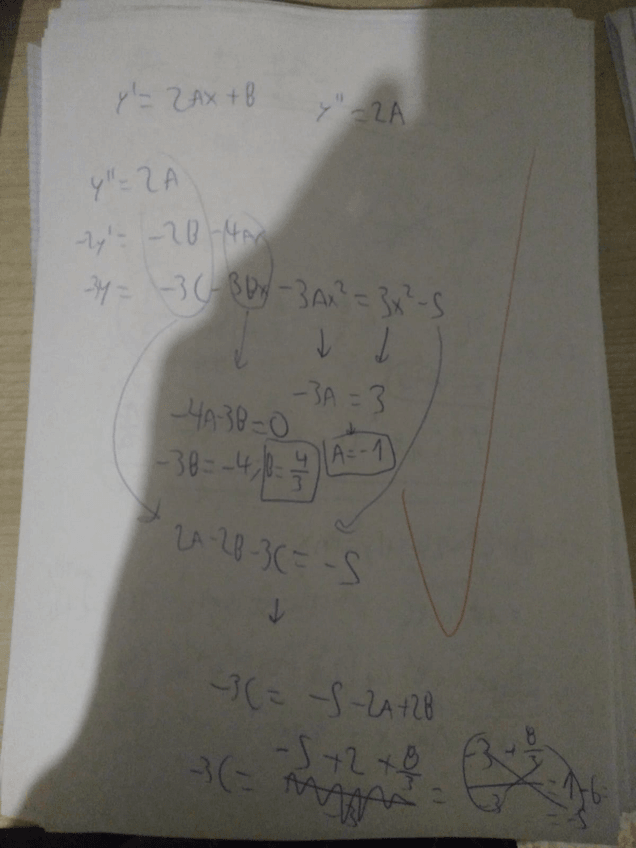 y' = 2Ax + B    y'' = 2A
y'' = 2A
-2y' = -2B -4Ax
-3y = -3C - 3Bx - 3Ax² = 3x² - 5
↓ ↓ ↓
-3A = 3
-4A-3B=0
-3B = -4, B = 4/3    A = -1
2A-2B-3C = -5
↓
-3C = -5 -2A +2B
-3C = -5 + 2 + 8/3 = -3 + 8/3